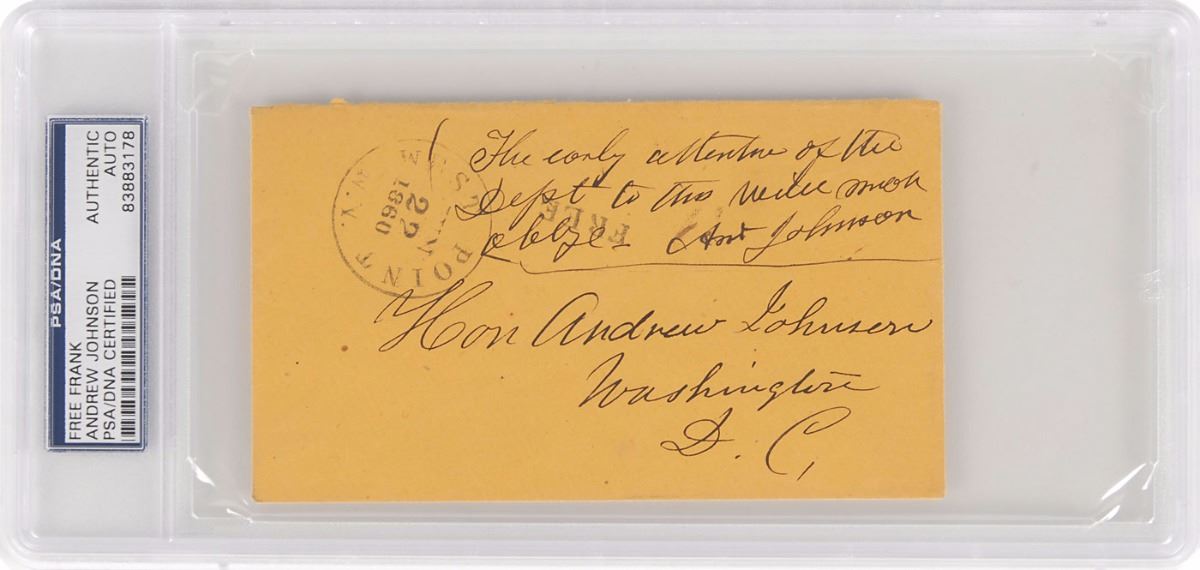 PSA/DNA
FREE FRANK
ANDREW JOHNSON
PSA/DNA CERTIFIED
AUTHENTIC
AUTO
83883178
WEST POINT N.Y.
22
1860
FREE
The early attention of the
Dept to this will much
oblige - And Johnson
Hon Andrew Johnson
Washington
D. C,